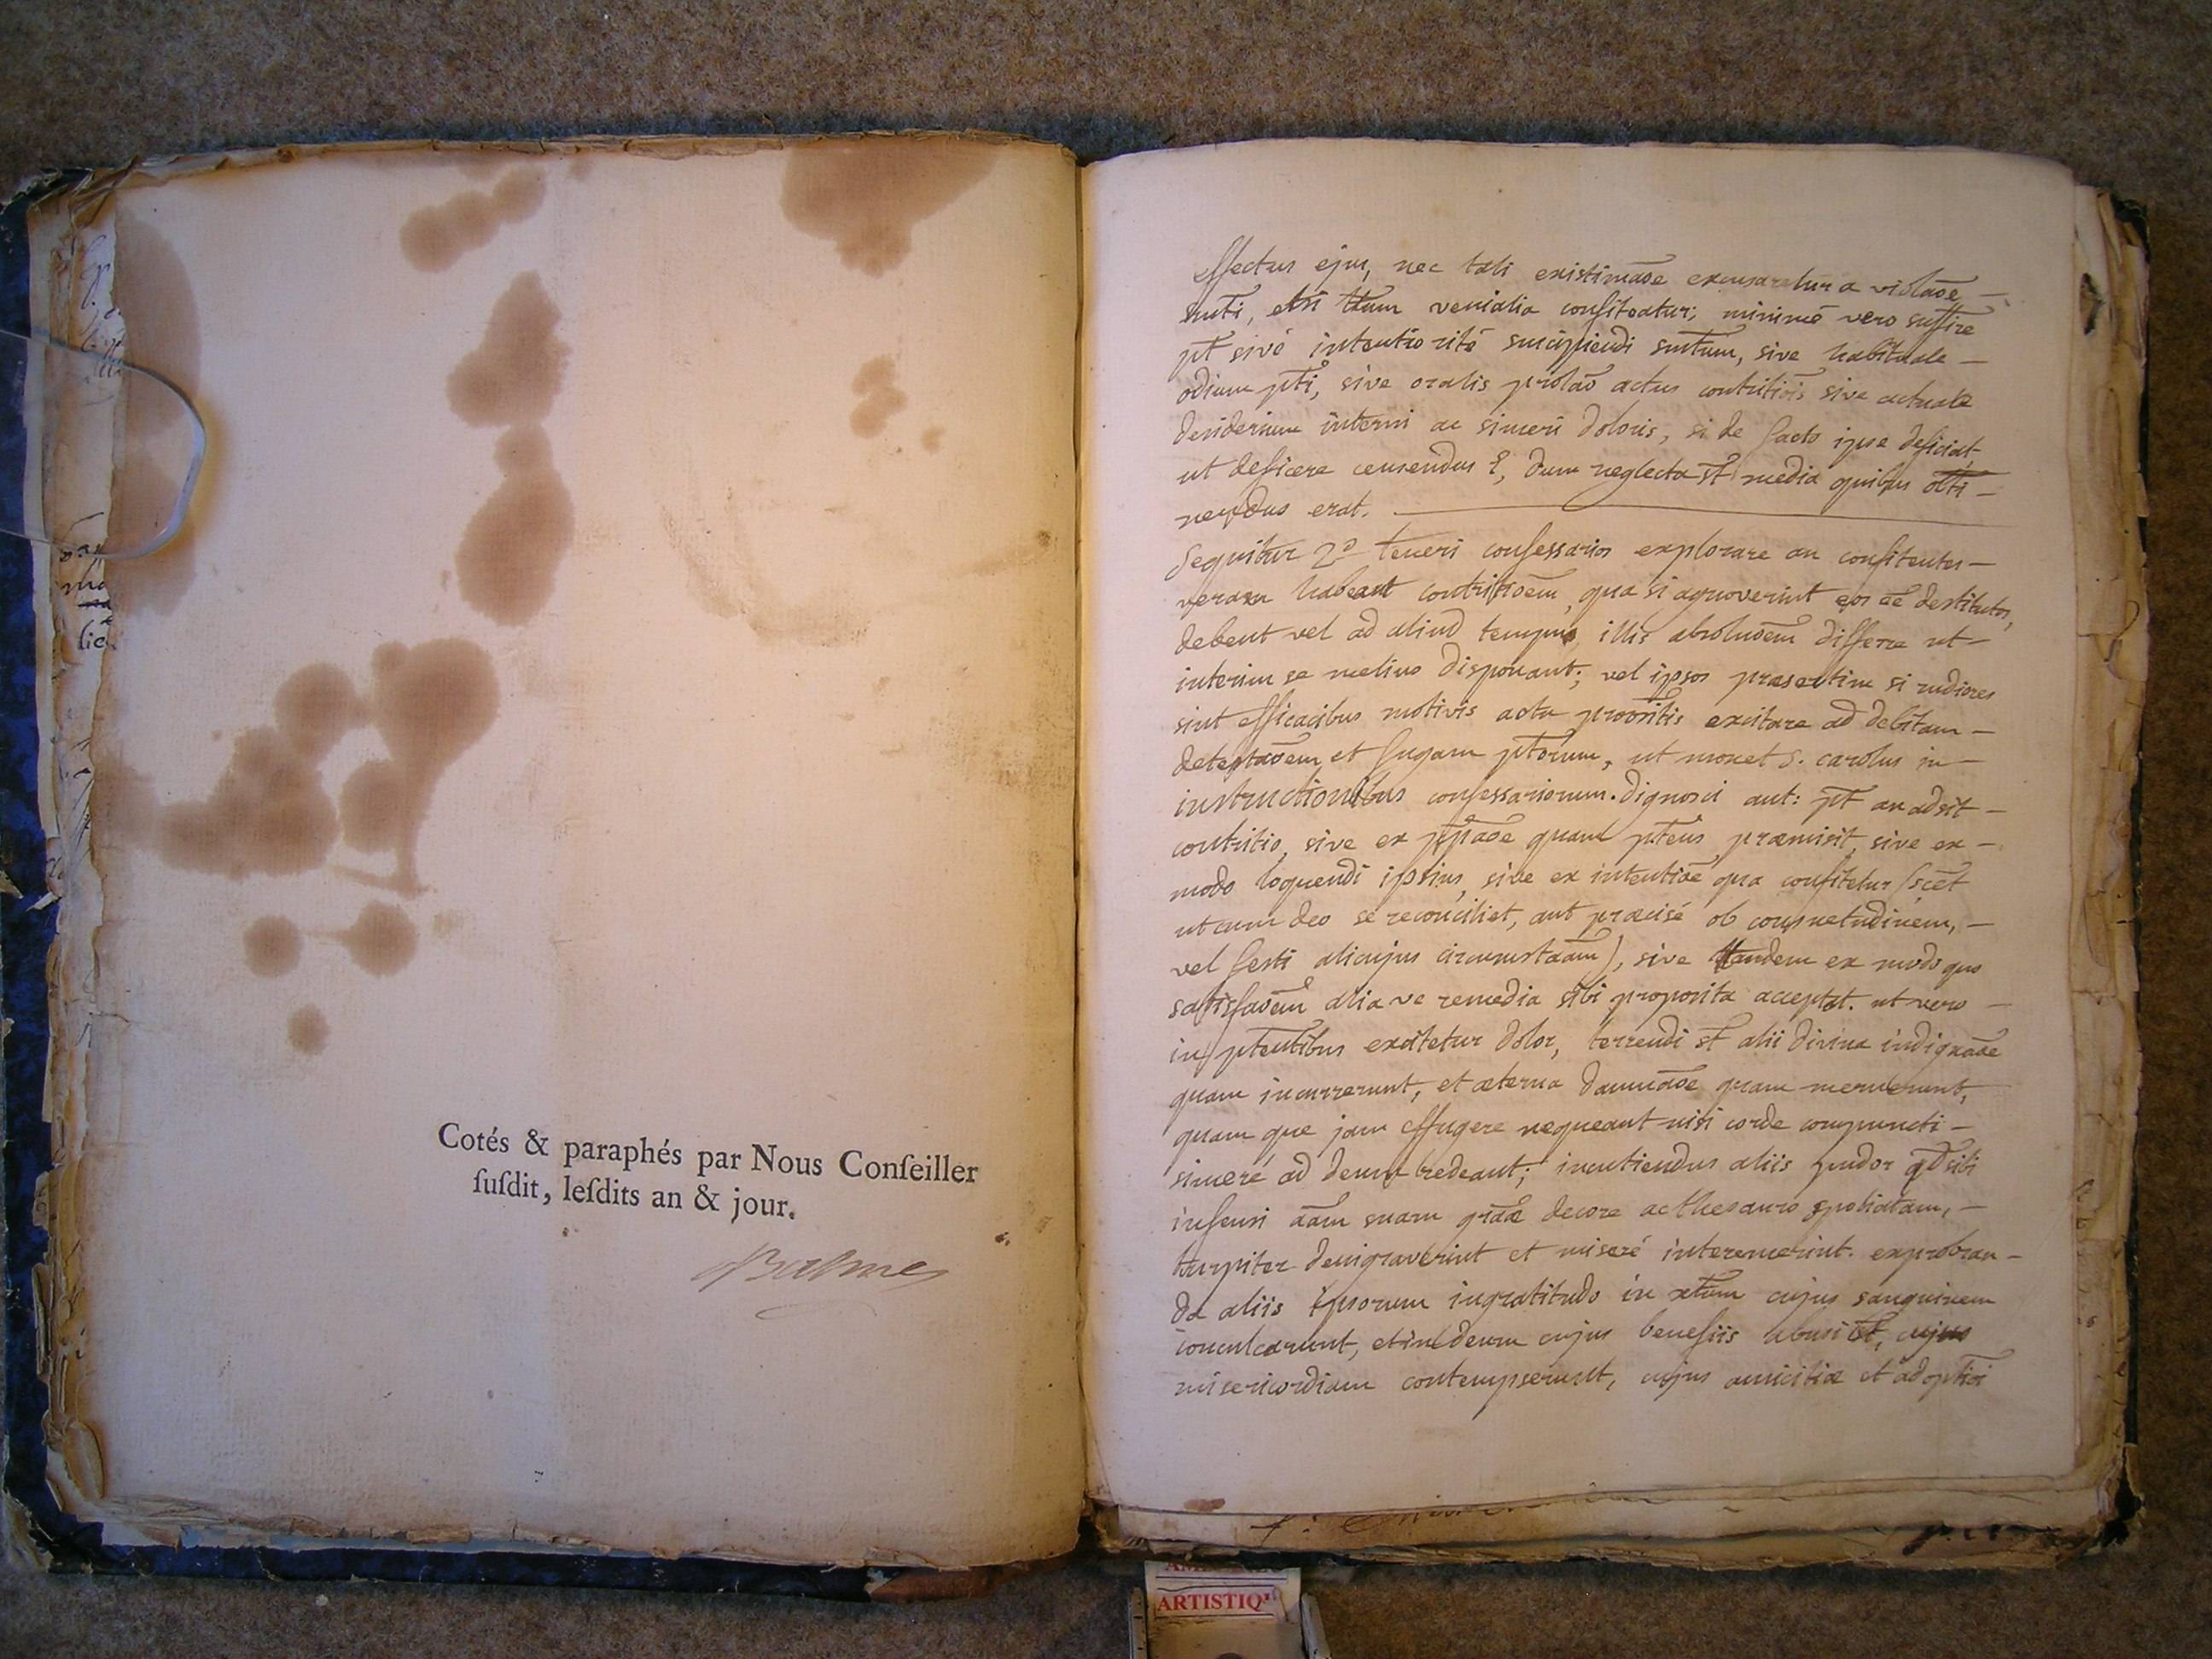 Cotés & paraphés par Nous Conſeiller
ſuſdit, leſdits an & jour.
Balme
effectus ejus, nec tali existimaōe excusaretur a violaōe
snti, etsi ttum venialia confiteatur; minimé vero suffire
pt sivé intentio rité suscipiendi sntum, sive habituale —
odium pti, sive oralis prolaō actus contritiōis sive actuale
desiderium interni ac sinceri doloris, si de facto ipse deficiat
ut deficere censendus ē, dum neglecta st media quibus obti-
nendus erat.
Sequitur 2º teneri confessarios explorare an confitentes —
veram habeant contritioēm, qua si agnoverint eos eē destitutos,
debent vel ad aliud tempus illis absoluoēm differre ut —
interim se melius disponant; vel ipsos præsertim si rudiores
sint efficacibus motivis excitare ad debitam —
detestaōem et fugam ptorum, ut monet S. carolus in —
instructionibus confessariorum. dignosci aut: pt an adsit —
contritio, sive ex quam ptens præmisit, sive ex —
modo loquendi ipsius, sive ex intentioē qua confitetur (scēt
ut cum deo se reconciliet, aut præcisé ob consuetudinem, —
vel festi alicujus circumstaām), sive tandem ex modo quo
satisfaoēm aliave remedia sibi proposita acceptat. ut vero —
in ptentibus excitetur dolor, terrendi st alii divina indignaōe
quam incurrerunt, et æterna damnaōe quam meruerunt,
quam que jam effugere nequeant nisi corde compuncti —
sinceré ad deum redeant; incutiendus aliis pudor qd sibi
infensi aām suam grāæ decore ac thesauro spoliatam, —
turpiter denigraverint et miseré interemerint. exprobran-
da aliis ipsorum ingratitudo in xtum cujus sanguinem
conculcarunt, et in deum cujus benefiis abusi st, cujus
misericordiam contempserunt, cujus amicitiæ et adoptioi
ARTISTIQ